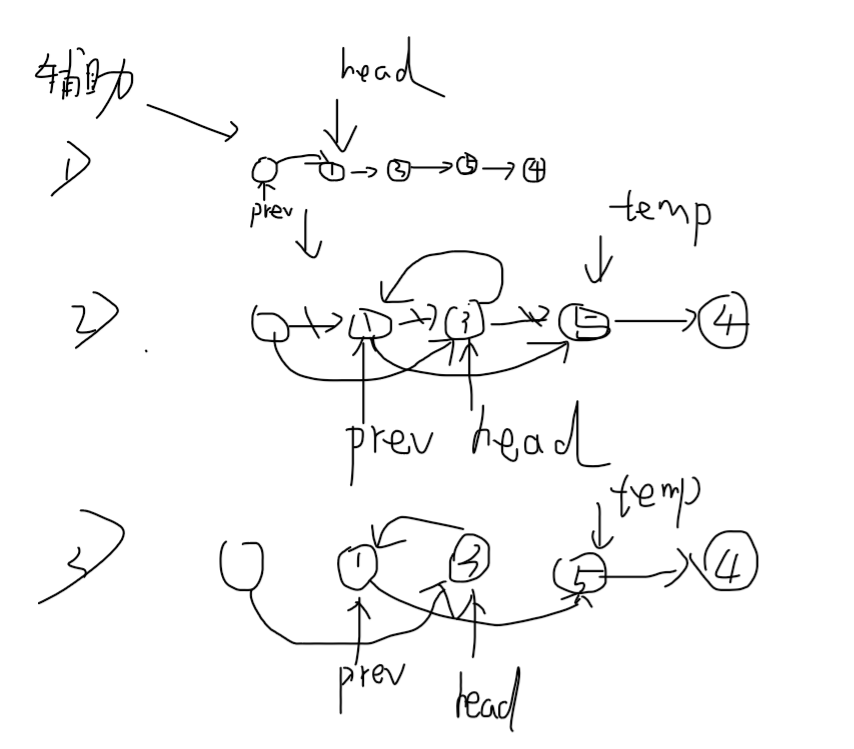 辅助
head
1)
1 3 5 4
prev
temp
2)
1 3 5 4
prev head
temp
3)
1 3 5 4
prev head